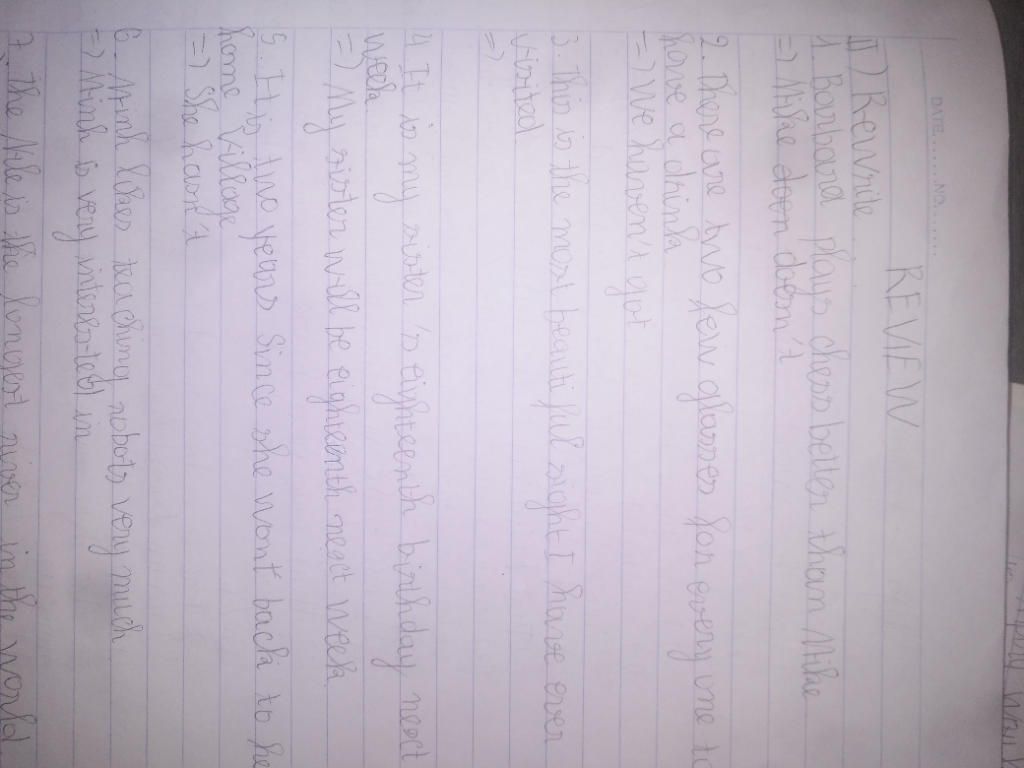 DATE........NO.........
REVIEW
II) Rewrite
1. Barbara plays chess better than Mike
=> Mike doen doesn't
2. There are two few glasses for every one to
have a drink
=> We haven't got
3. This is the most beautiful sight I have ever
visited
=>
4 It is my sister's eighteenth birthday next
week
=> My sister will be eighteenth next week
5. It is two years since she wont back to he
home village
=> She hasn't
6. Minh likes teaching robots very much
=> Minh is very interested in
7. The Nile is the longest river in the world